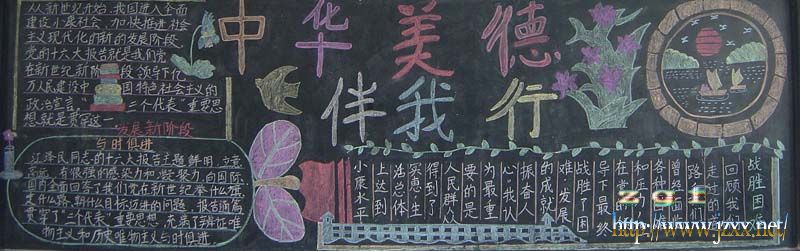 从新世纪开始,我国进入全面
建设小康社会、加快推进社会
主义现代化的新的发展阶段.
党的十六大报告就是我们党
在新世纪新阶段领导下亿
万人民建设中国特色社会主义的
政治宣言。"三个代表"重要思
想就是贯穿这一
发展新阶段
中华美德
伴我行
与时俱进
江泽民同志的十六大报告主题鲜明、
有很强的感染力和凝聚力,向国际
国内全面回答了我们党在新世纪举什么旗
走什么路、朝什么目标迈进的问题,报告通篇
贯穿了"三个代表"重要思想,充满了辩证唯
物主义和历史唯物主义与时俱进.
战胜困
回顾我们
走过的
路,我们
曾经面临
各种
和
在党
导下最终
战胜了困
难,发展
的成就
振奋人
心,我认
为最重
要的是
人民群众
得到了
实惠,生
活总体
上达到
小康水平
zgf
http://www.jzxx.net/